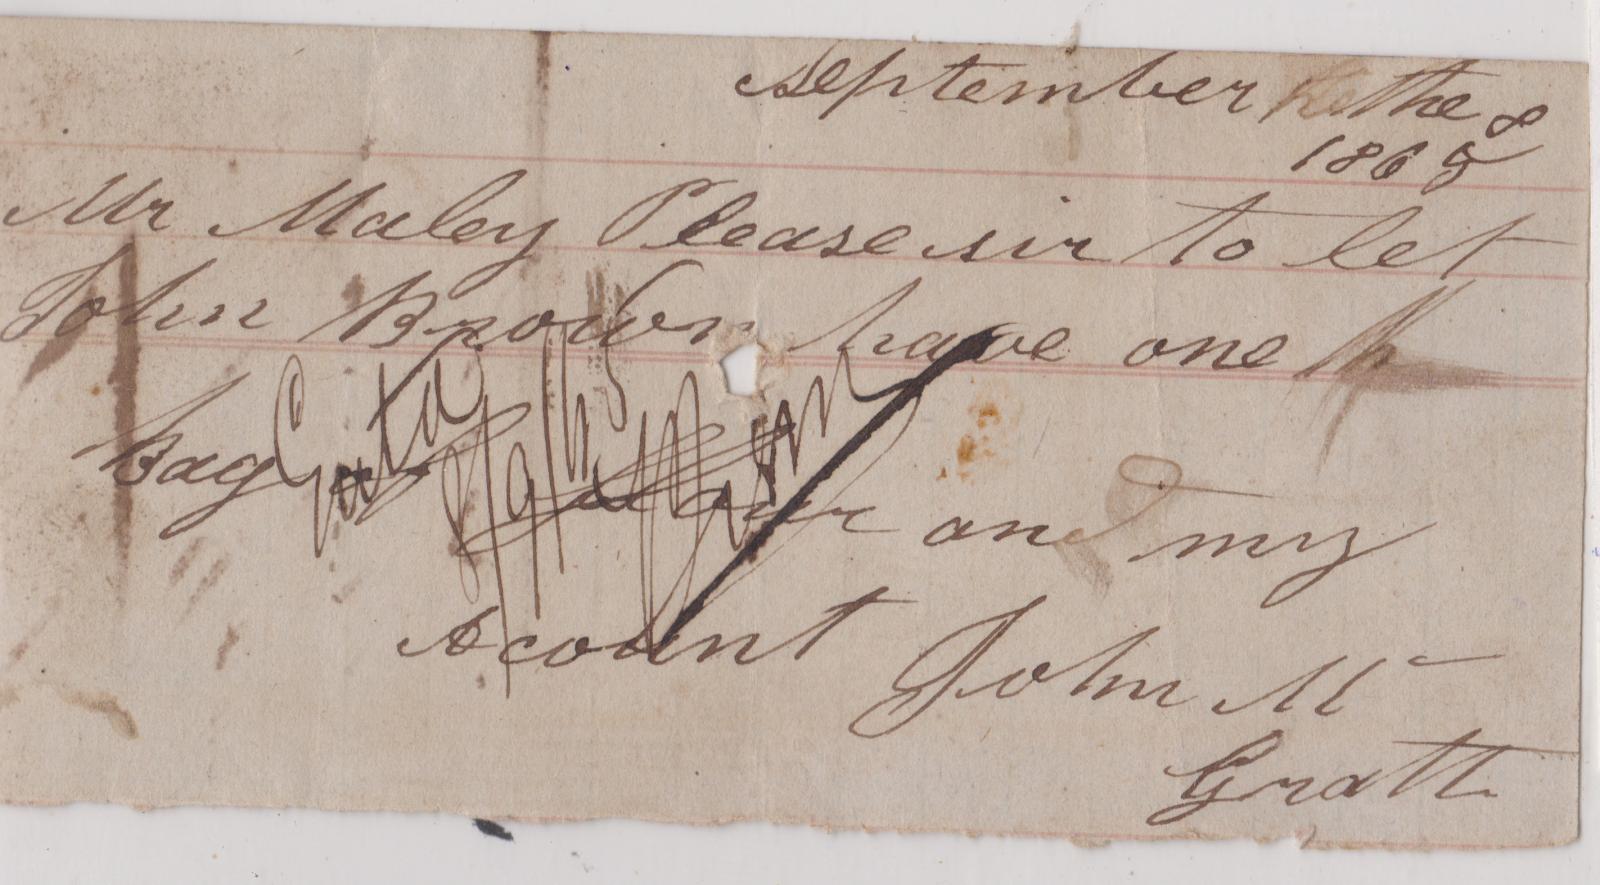 September the 8
1868
Mr Maley Please sir to let
John Brown have one
Bag and my
Acount
John Mc
Gratt